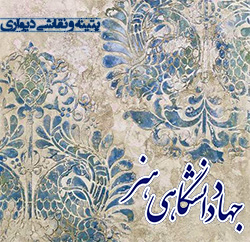 پتینه و نقاشی دیواری
جهاد دانشگاهی هنر